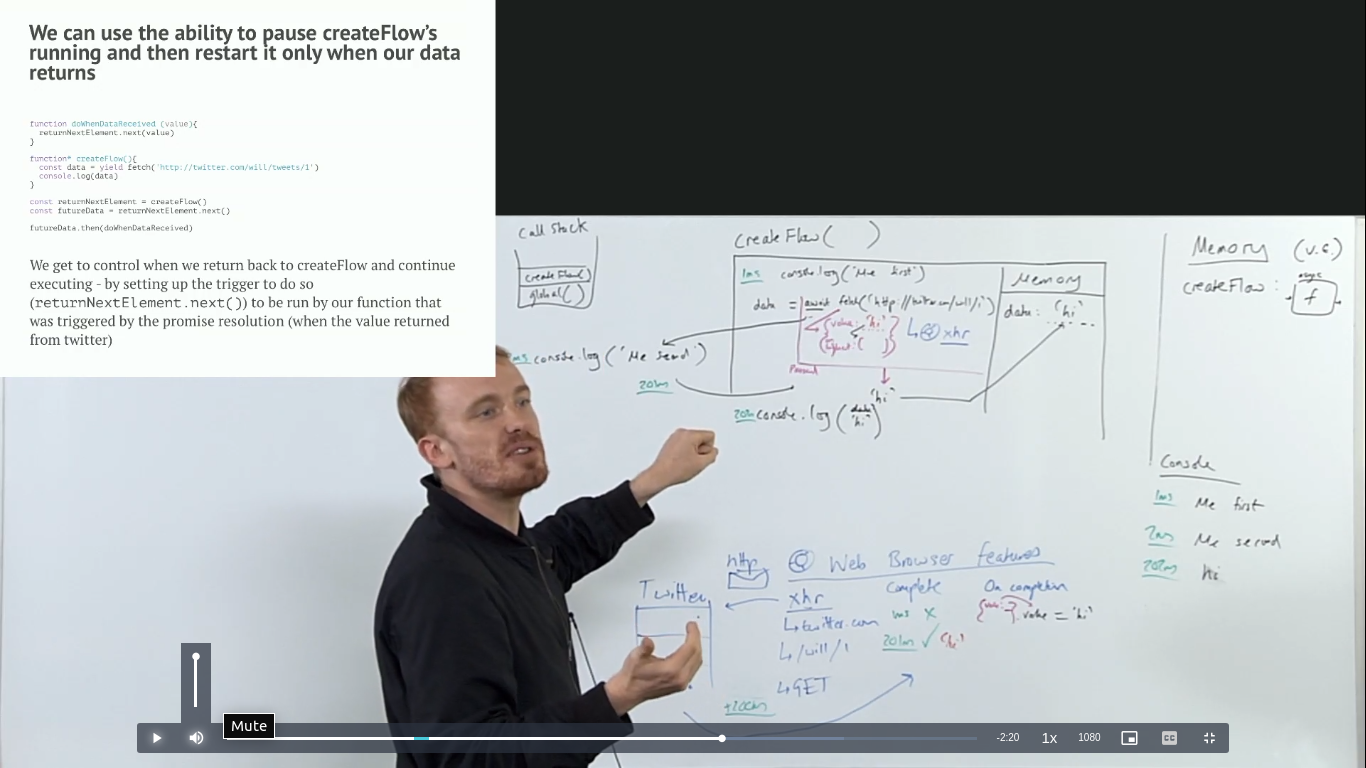 We can use the ability to pause createFlow’s
running and then restart it only when our data
returns
function doWhenDataReceived (value){
returnNextElement.next(value)
}
function* createFlow(){
const data = yield fetch('http://twitter.com/will/tweets/1')
console.log(data)
}
const returnNextElement = createFlow()
const futureData = returnNextElement.next()
futureData.then(doWhenDataReceived)
We get to control when we return back to createFlow and continue
executing - by setting up the trigger to do so
(returnNextElement.next()) to be run by our function that
was triggered by the promise resolution (when the value returned
from twitter)
Call Stack
createFlow()
global()
createFlow( )
1ms console.log('Me first')
data = await fetch('http://twitter.com/will/1')
{value: 'hi' }
↳ xhr
Paused
'hi'
console.log(
data
'hi'
Memory
data: 'hi'
console.log('Me second')
201m
Memory (v.e.)
createFlow:
async
f
Console
1ms Me first
2ms Me second
202ms hi
Twitter
http
Web Browser features
xhr
Complete
On completion
↳twitter.com
ms X
.value = 'hi'
↳/will/1
201m ✓ 'hi'
↳GET
+200m
Mute
-2:20
1x
1080
CC